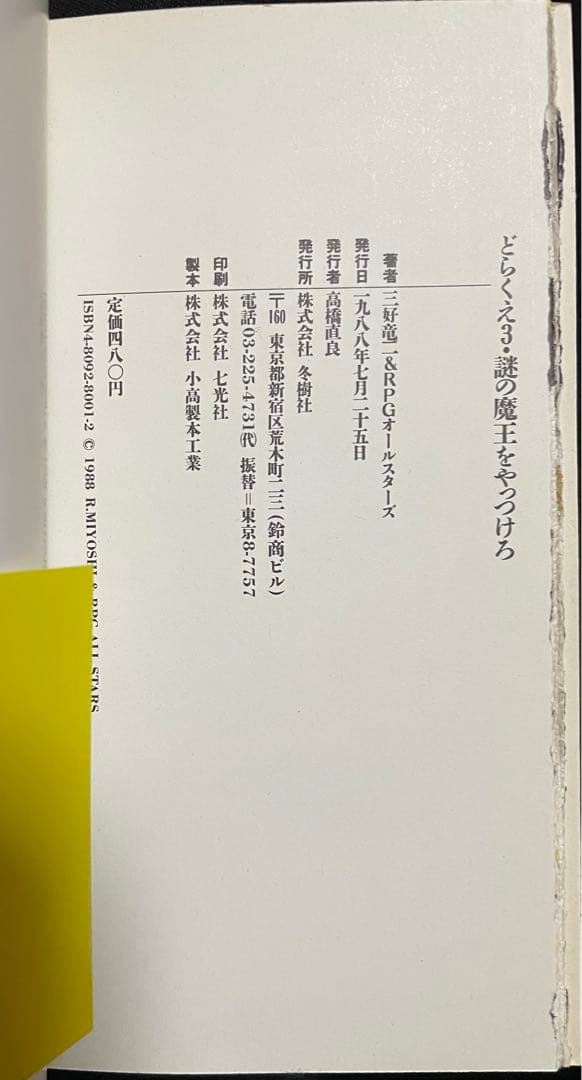 どらくえ3・謎の魔王をやっつけろ
著者 三好竜二&RPGオールスターズ
発行日 一九八八年七月二十五日
発行者 高橋直良
発行所 株式会社 冬樹社
〒160 東京都新宿区荒木町二三(鈴商ビル)
電話03-225-4731㈹ 振替=東京8-7757
印刷 株式会社 七光社
製本 株式会社 小高製本工業
定価四八〇円
ISBN4-8092-8001-2 © 1988 R.MIYOSHI & RPG ALL STARS